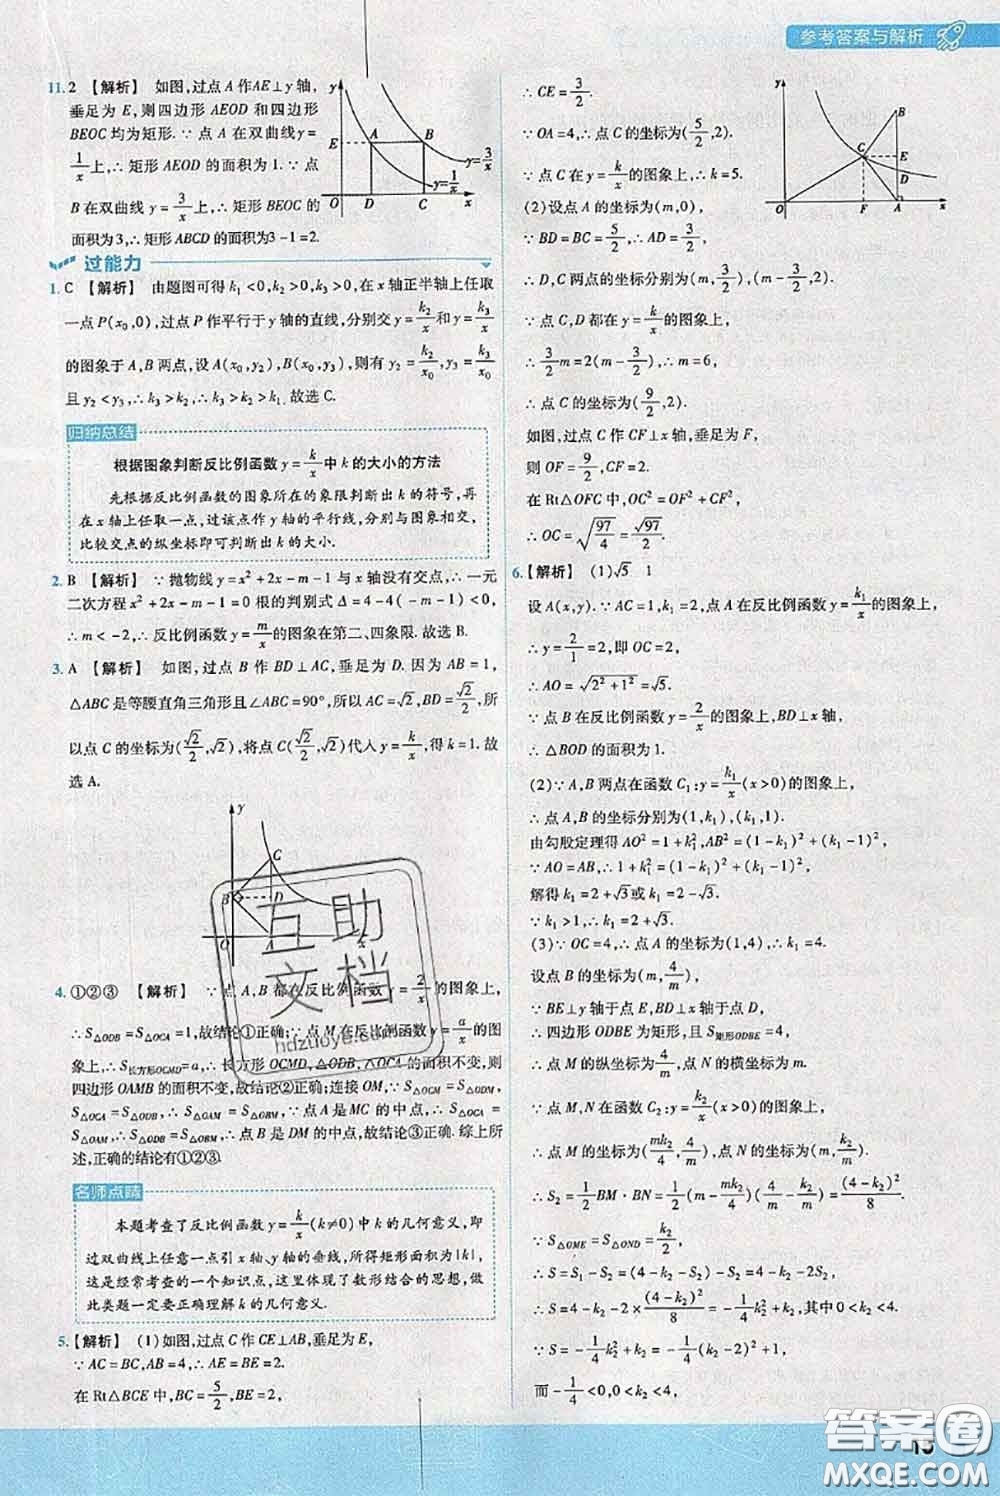 参考答案与解析
11.2 【解析】 如图,过点 A 作AE⊥y 轴,
垂足为 E,则四边形 AEOD 和四边形
BEOC 均为矩形.∵点 A 在双曲线y=
1/x上,∴矩形 AEOD 的面积为 1.∵点
B 在双曲线 y=3/x上,∴矩形 BEOC 的
面积为3,∴矩形 ABCD 的面积为3-1=2.
y
E A B
y=3/x
y=1/x
O D C x
过能力
1. C 【解析】 由题图可得 k₁<0,k₂>0,k₃>0,在 x 轴正半轴上任取
一点 P(x₀,0),过点 P 作平行于 y 轴的直线,分别交 y=k₂/x和 y=k₃/x
的图象于 A,B 两点,设 A(x₀,y₂),B(x₀,y₃),则有 y₂=k₂/x₀,y₃=k₃/x₀,
且 y₂<y₃,∴k₃>k₂,∴k₃>k₂>k₁.故选 C.
归纳总结
根据图象判断反比例函数 y=k/x中 k 的大小的方法
先根据反比例函数的图象所在的象限判断出 k 的符号,再
在 x 轴上任取一点,过该点作 y 轴的平行线,分别与图象相交,
比较交点的纵坐标即可判断出 k 的大小.
2. B 【解析】 ∵抛物线 y=x²+2x-m-1 与 x 轴没有交点,∴一元
二次方程 x²+2x-m-1=0 根的判别式 Δ=4-4(-m-1)<0,
∴m<-2,∴反比例函数 y=m/x的图象在第二、四象限.故选 B.
3. A 【解析】 如图,过点 B 作 BD⊥AC,垂足为 D.因为 AB=1,
△ABC 是等腰直角三角形且∠ABC=90°,所以 AC=√2,BD=√2/2,所
以点 C 的坐标为(√2/2,√2),将点 C(√2/2,√2)代入 y=k/x,得 k=1.故
选 A.
y
C
B D
O A x
互助文档
hdzuoye.com
4. ①②③ 【解析】 ∵点 A,B 都在反比例函数 y=2/x的图象上,
∴S△ODB=S△OCA=1,故结论①正确;∵点 M 在反比例函数 y=a/x的图
象上,∴S长方形OCMD=a,∴长方形 OCMD,△ODB,△OCA 的面积不变,则
四边形 OAMB 的面积不变,故结论②正确;连接 OM,∵S△OCM=S△ODM,
S△OCA=S△ODB,∴S△OAM=S△OBM,∵点 A 是 MC 的中点,∴S△OCA=
S△OAM,∴S△ODB=S△OBM,∴点 B 是 DM 的中点,故结论③正确.综上所
述,正确的结论有①②③.
名师点睛
本题考查了反比例函数 y=k/x(k≠0)中 k 的几何意义,即
过双曲线上任意一点引 x 轴、y 轴的垂线,所得矩形面积为|k|,
这是经常考查的一个知识点,这里体现了数形结合的思想,做
此类题一定要正确理解 k 的几何意义.
5.【解析】 (1)如图,过点 C 作 CE⊥AB,垂足为 E,
∵AC=BC,AB=4,∴AE=BE=2.
在 Rt△BCE 中,BC=5/2,BE=2,
∴CE=3/2.
∵OA=4,∴点 C 的坐标为(5/2,2).
∵点 C 在 y=k/x的图象上,∴k=5.
(2)设点 A 的坐标为(m,0),
∵BD=BC=5/2,∴AD=3/2,
∴D,C 两点的坐标分别为(m,3/2),(m-3/2,2).
y
B
C E
D
O F A x
∵点 C,D 都在 y=k/x的图象上,
∴3/2m=2(m-3/2),∴m=6,
∴点 C 的坐标为(9/2,2).
如图,过点 C 作 CF⊥x 轴,垂足为 F,
则 OF=9/2,CF=2.
在 Rt△OFC 中,OC²=OF²+CF²,
∴OC=√(97/4)=√97/2.
6.【解析】 (1)√5 1
设 A(x,y).∵AC=1,k₁=2,点 A 在反比例函数 y=k₁/x的图象上,
∴y=2/1=2,∴OC=2,
∴AO=√(2²+1²)=√5.
∵点 B 在反比例函数 y=2/x的图象上,BD⊥x 轴,
∴△BOD 的面积为 1.
(2)∵A,B 两点在函数 C₁:y=k₁/x(x>0)的图象上,
∴点 A,B 的坐标分别为(1,k₁),(k₁,1).
由勾股定理得 AO²=1+k₁²,AB²=(1-k₁)²+(1-k₁)²,
∵AO=AB,∴1+k₁²=(1-k₁)²+(1-k₁)²,
解得 k₁=2+√3或 k₁=2-√3.
∵k₁>1,∴k₁=2+√3.
(3)∵OC=4,∴点 A 的坐标为(1,4),∴k₁=4.
设点 B 的坐标为(m,4/m),
∵BE⊥y 轴于点 E,BD⊥x 轴于点 D,
∴四边形 ODBE 为矩形,且 S矩形ODBE=4,
∴点 M 的纵坐标为4/m,点 N 的横坐标为 m.
∵点 M,N 在函数 C₂:y=k₂/x(x>0)的图象上,
∴点 M 的坐标为(mk₂/4,4/m),点 N 的坐标为(m,k₂/m),
∴S₂=1/2BM·BN=1/2(m-mk₂/4)(4/m-k₂/m)=(4-k₂)²/8.
∵S△OME=S△OND=k₂/2,
∴S=S₁-S₂=(4-k₂/2-k₂/2-S₂)-S₂=4-k₂-2S₂,
∴S=4-k₂-2×(4-k₂)²/8=-1/4k₂²+k₂,其中0<k₂<4.
∵S=-1/4k₂²+k₂=-1/4(k₂-2)²+1,
而-1/4<0,0<k₂<4,
答案圈
MXQE.COM